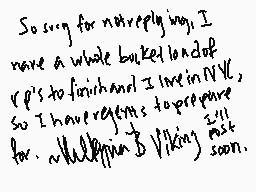 So sorry for not replying, I
have a whole bucket load of
rp's to finish and I live in NYC,
so I have regents to prepare
for. I'll post soon.
~ B Viking